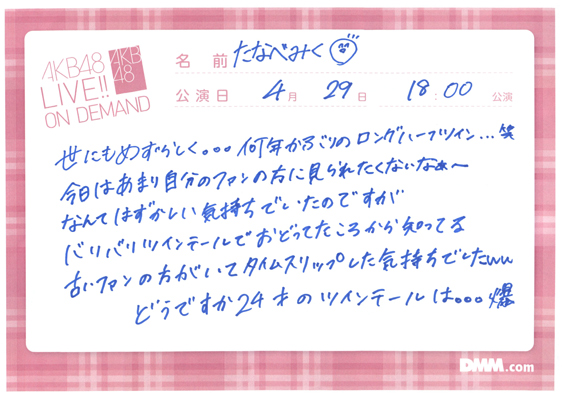 AKB48
LIVE!!
ON DEMAND
AKB
48
名前 たなべみく
公演日 4月 29日 18:00 公演
世にもめずらしく。。。何年かぶりのロングハーフツイン…笑
今日はあまり自分のファンの方に見られたくないなぁ〜
なんてはずかしい気持ちでいたのですが
バリバリツインテールでおどってたころから知ってる
古いファンの方がいてタイムスリップした気持ちでしたww
どうですか24才のツインテールは。。。爆
DMM.com